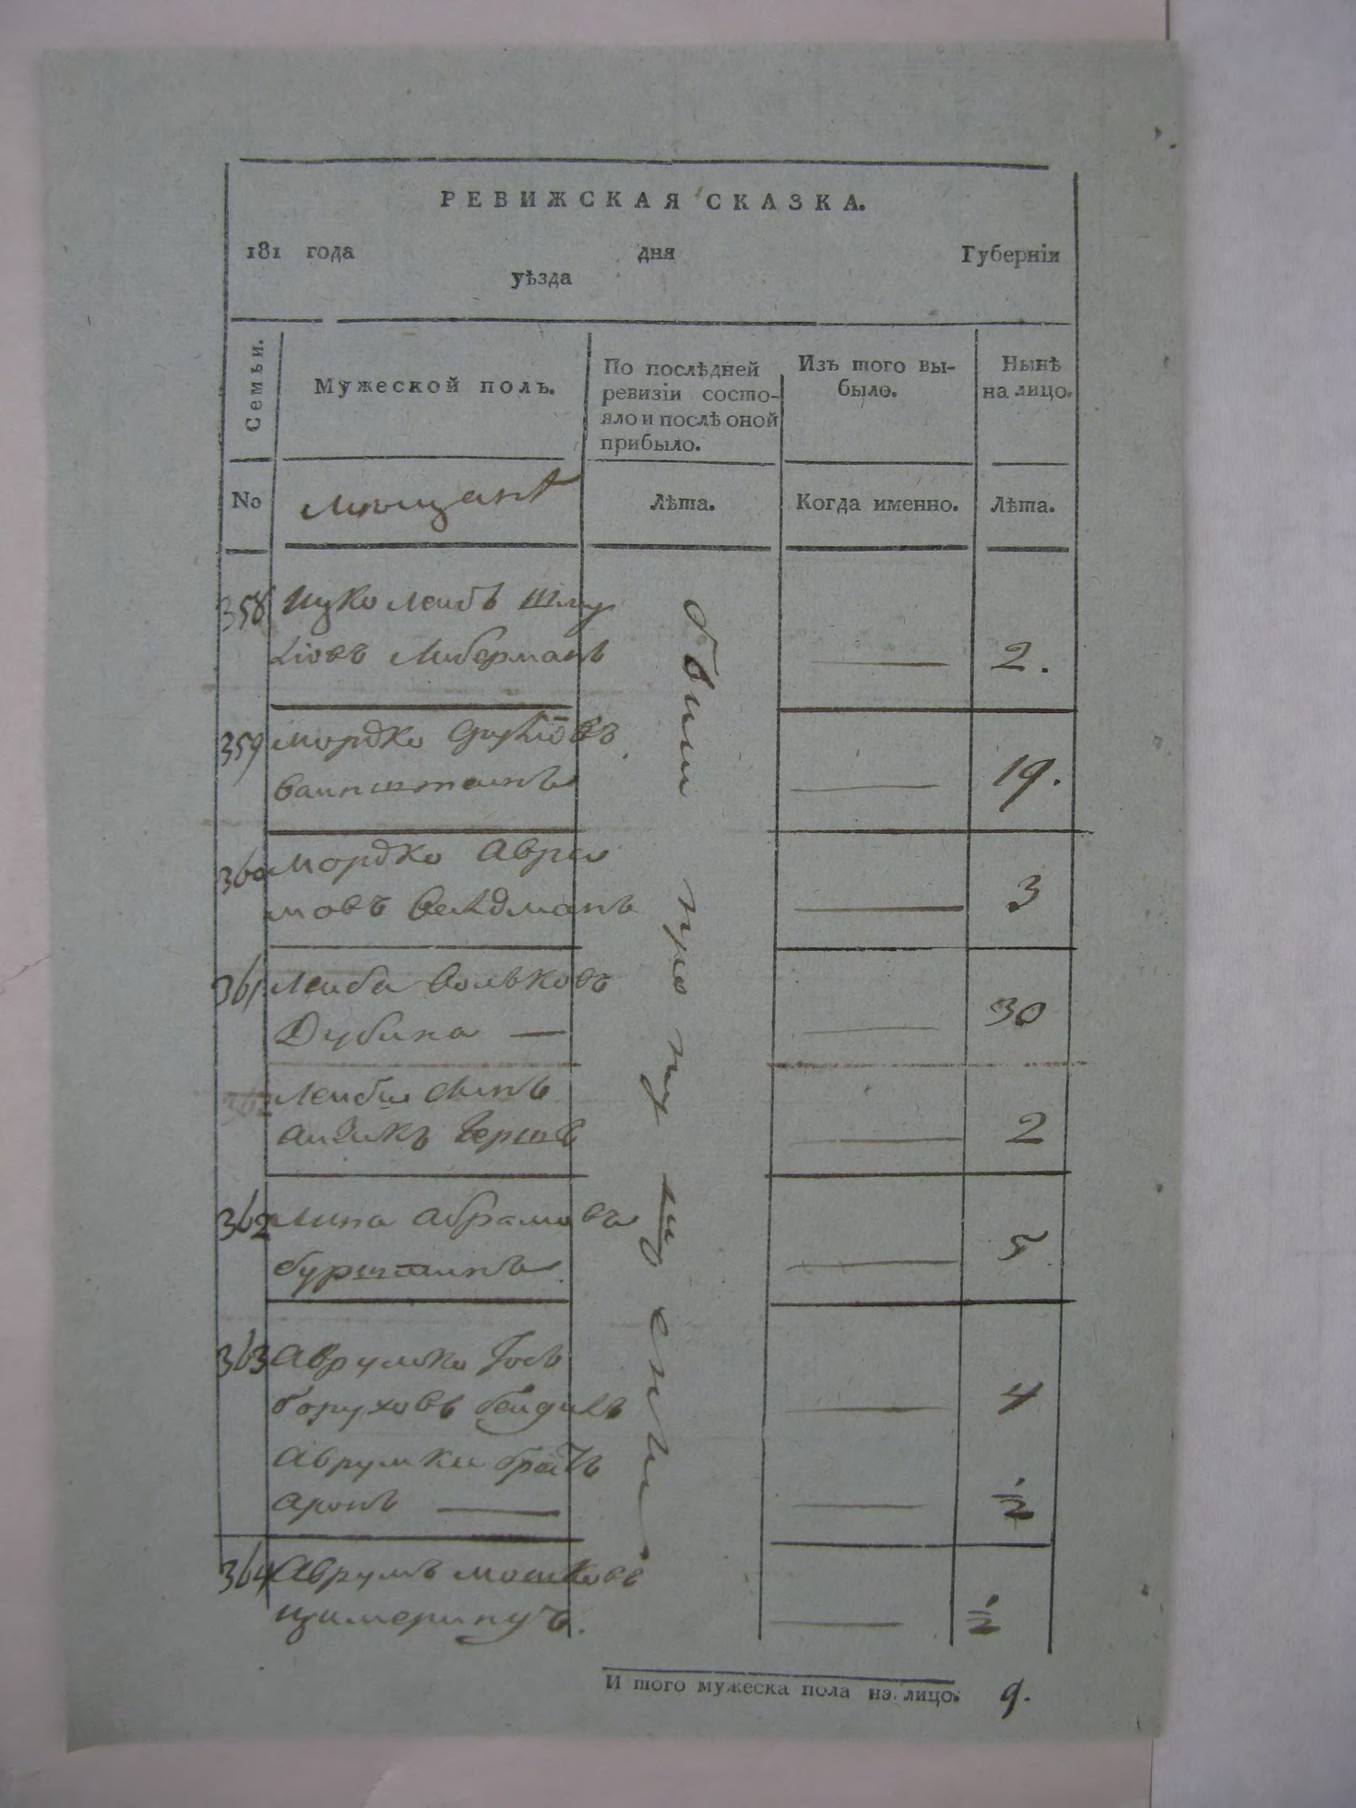 РЕВИЖСКАЯ СКАЗКА.
181 года дня Губернїи
уѣзда
Семьи.
Мужеской полъ.
По послѣдней
ревизїи состо-
яло и послѣ оной
прибыло.
Изъ того вы-
было.
Нынѣ
на лицо.
No
Лѣта.
Когда именно.
Лѣта.
были пропущены
358 Ицко Лейбъ Шму
лїовъ Либерманъ 2.
359 Мордко
ваинштеинъ 19.
360 Мордко Авра
мовъ Велдманъ 3
361 Леиба Волвковъ
Дубина — 30
Леибы сынъ
аизикъ Бершъ 2
362 Липа абрамовъ
бурштинъ 5
363 Аврумко Іосъ
боруховъ 4
Аврумки братъ
аронъ — 1/2
364 Аврумъ мошковъ
1/2
И того мужеска пола на лицо. 9.